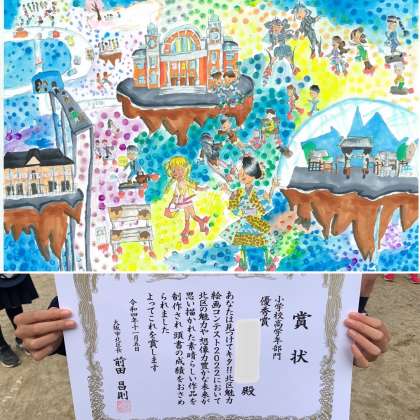 賞状
小学校高学年部門
優秀賞
殿
あなたは見つけてキタ!!北区魅力
絵画コンテスト2022において
北区の魅力や想像力豊かな未来が
思い描かれた素晴らしい作品を
制作され頭書の成績をおさめ
られました
よってこれを賞します
令和四年十一月五日
大阪市北区長 前田昌則